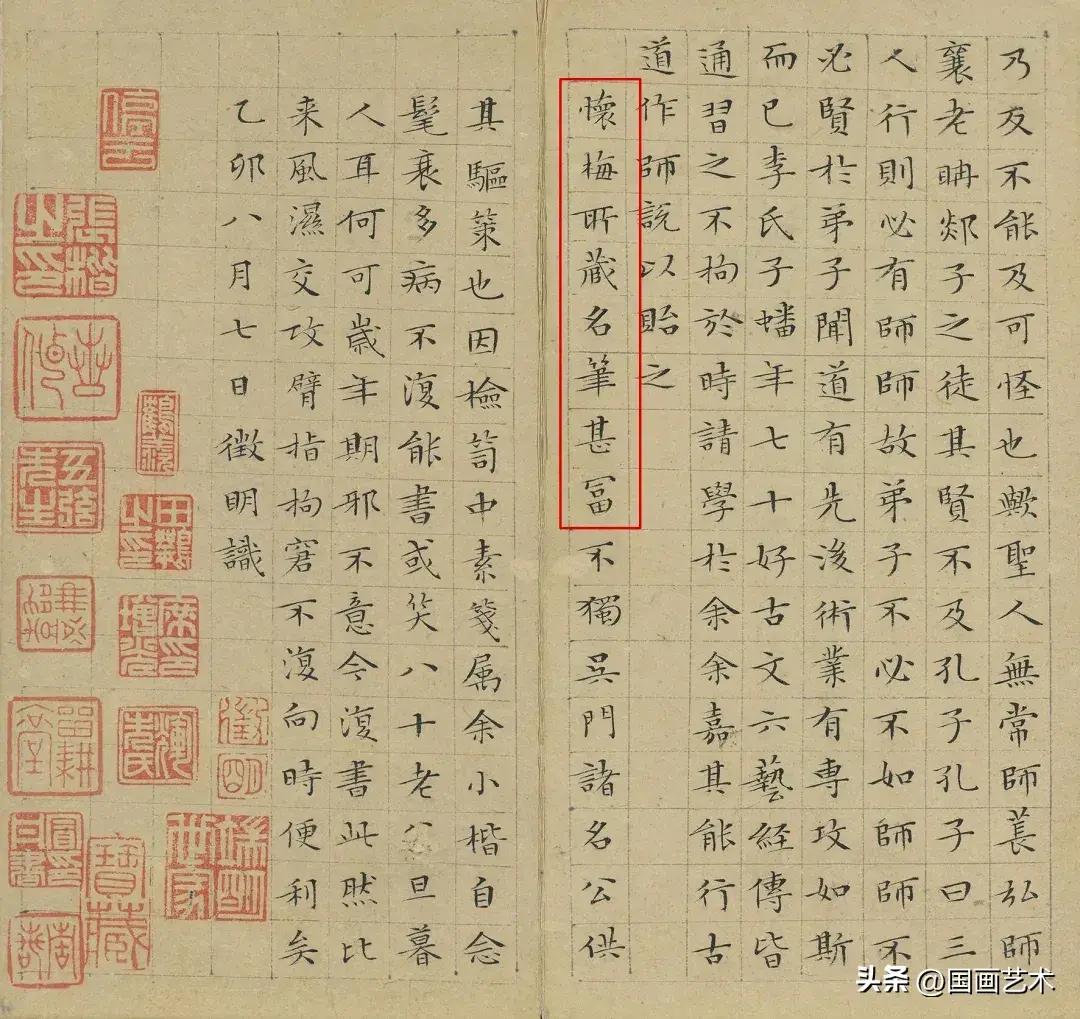 乃反不能及可怪也歟聖人無常師萇弘師
襄老聃郯子之徒其賢不及孔子孔子曰三
人行則必有師師故弟子不必不如師師不
必賢於弟子聞道有先後術業有専攻如斯
而已李氏子蟠年七十好古文六藝經傳皆
通習之不拘於時請學於余余嘉其能行古
道作師說以貽之
懷梅所藏名筆甚冨不獨吳門諸名公供
其驅策也因檢笥中素箋属余小楷自念
髦衰多病不復能書或笑八十老公旦暮
人耳何可歲年期邪不意今復書此然比
来風濕交攻臂指拘窘不復向時便利矣
乙卯八月七日徵明識
徵明
張楷之印
五弦先生
寶藏
头条 @国画艺术